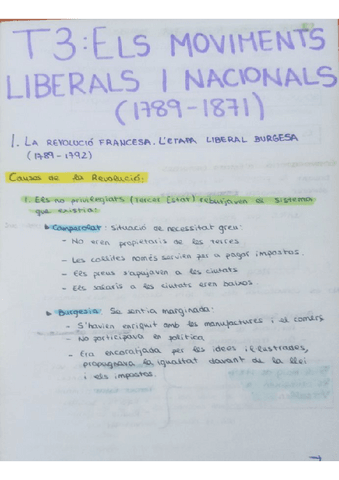 T3: ELS MOVIMENTS
LIBERALS I NACIONALS
(1789-1871)
1. LA REVOLUCIÓ FRANCESA. L'ETAPA LIBERAL BURGESA
(1789-1792)
Causes de la Revolució:
1. Els no privilegiats (Tercer Estat) rebutjaven es sistema
que existia:
Camperolat: situació de necessitat greu:
- No eren propietaris de les terres.
- Les collites només servien per a pagar impostos.
- Els preus s'apujaven a les ciutats.
- Els salaris a les ciutats eren baixos.
Burgesia: Se sentia marginada:
- S'havien enriquit amb les manufactures i el comerç
- No participava en política
- Era encoratjada per les idees il·lustrades,
propugnava la igualtat davant de la llei
i els impostos.